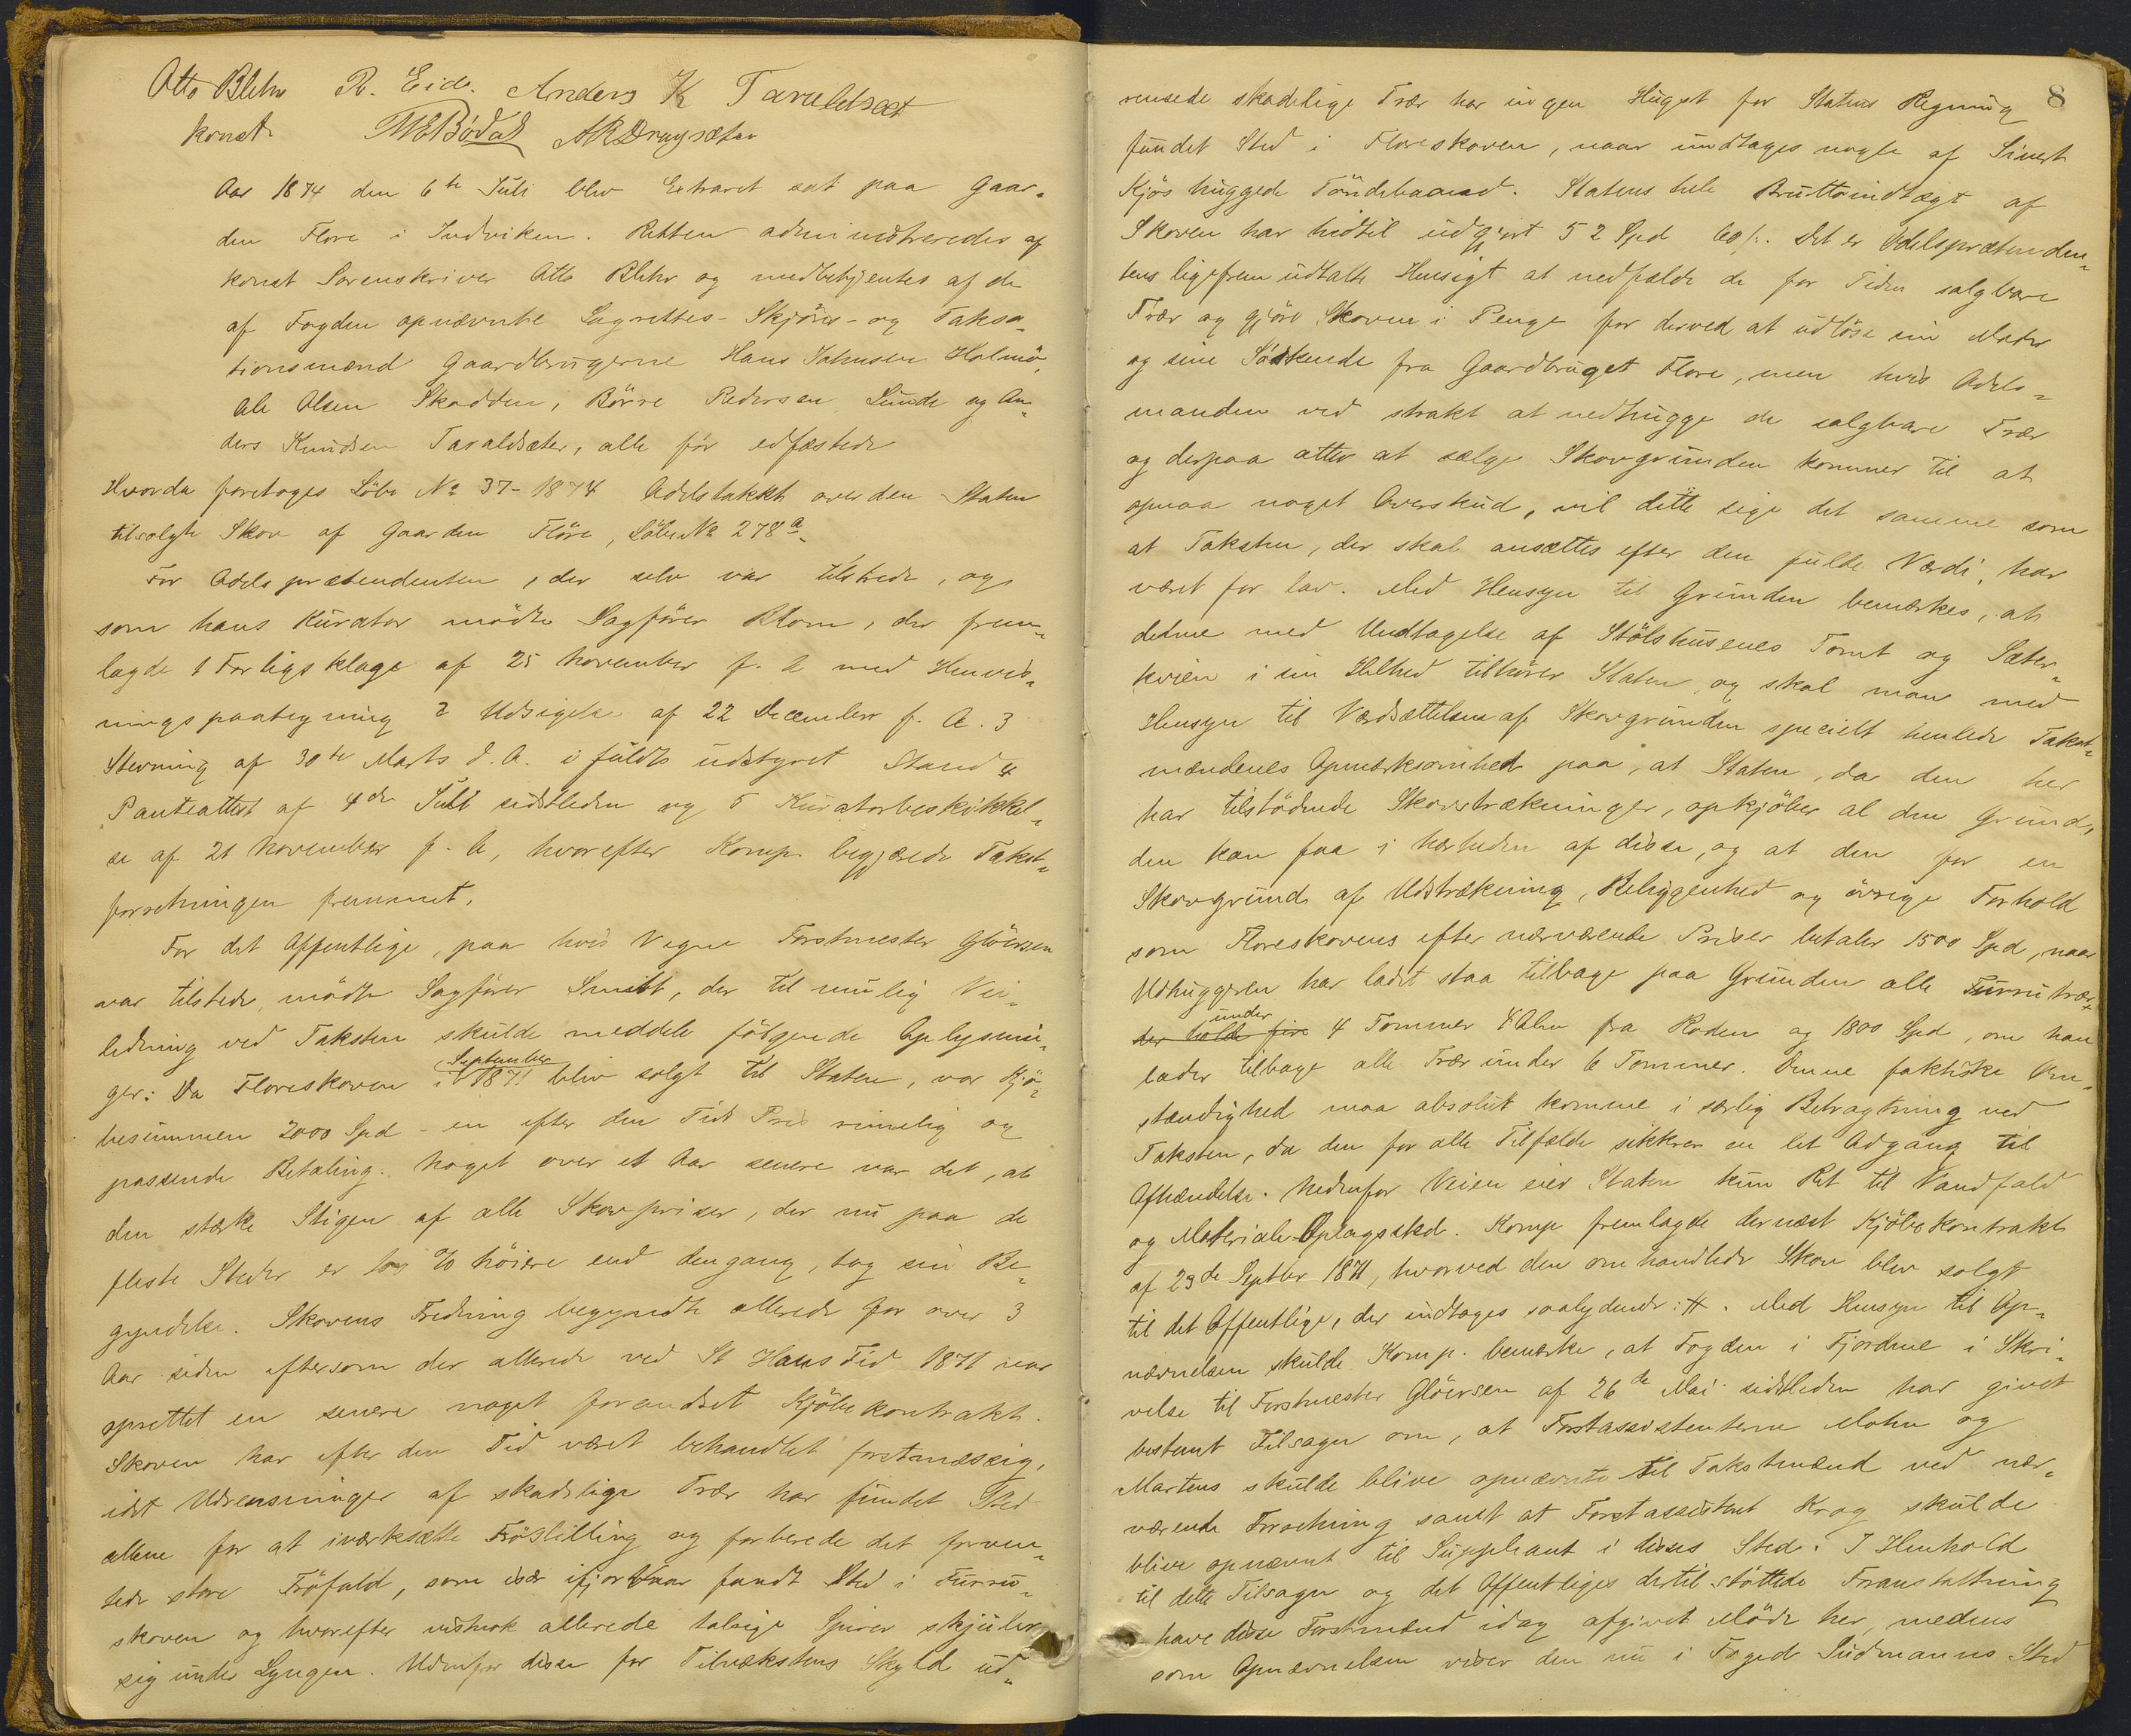 Otto Blehr R. Eide. Anders K Taraldsæt
konst. MEBödal ARDragsæter
Aar 1874 den 6te Juli blev Extraret sat paa Gaar-
den Flore i Indviken. Retten administreredes af
konst Sorenskriver Otto Blehr og medbetjentes af de
af Fogden opnævnte Lagrettes- Skjöns- og Taksa-
tionsmænd Gaardbrugerne Hans Johnsen Holmö,
Ole Olsen Skadden, Börre Pedersen Sunde og An-
ders Knudsen Taraldsæter, alle för edfæstede
Hvorda foretoges Löbe No 37-1874 Odelstakst over den Staten
tilsolgte Skov af Gaarden Flöre, Löbe No 278a.
For Odelsprætendenten, der selv var tilstede, og
som hans Kurator mödte Sagförer Blom, der frem-
lagde 1 Forligsklage af 25 November f. A med Henvis-
ningspaategning 2 Udsigelse af 22 December f. A. 3
Stevning af 30te Marts d. A. i fuldt udstyret Stand 4
Panteattest af 4de Juli sidstleden og 5 Kuratorbeskikkel-
se af 21 November f. A, hvorefter Komp. begjærede Takst-
forretningen fremmet.
For det Offentlige, paa hvis Vegne Forstmester Glöersen
var tilstede, mödte Sagförer Smitt, der til mulig Vei-
ledning ved Taksten skulde meddele fölgende Oplysnin-
ger: Da Floreskoven i September 1871 blev solgt til Staten, var Kjö-
besummen 2000 Spd - en efter den Tids Pris rimelig og
passende Betaling. Noget over et Aar senere var det, at
den stærke Stigen af alle Skovpriser, der nu paa de
fleste Steder er 100 % höiere end dengang, tog sin Be-
gyndelse. Skovens Fredning begyndte allerede for over 3
Aar siden eftersom der allerede ved St Hans Tid 1871 var
oprettet en senere noget forandret Kjöbekontrakt.
Skoven har efter den Tid været behandlet forstmæssig,
idet Udrensninger af skadelige Trær har fundet Sted
allene for at iværksætte Fröstilling og forberede det forven-
tede store Fröfald, som især ifjor Vaar fandt Sted i Furru-
skoven og hvorefter vistnok allerede talrige Spirer skjuler
sig under Lyngen. Udenfor disse for Tilvækstens Skyld ud-
8
rensede skadelige Trær har ingen Hugst for Statens Regning
fundet Sted i Floreskoven, naar undtages nogle af Sivert
Kjös huggede Töndebaand. Statens hele Bruttoindtægt af
Skoven har hidtil udgjort 52 Spd 60 s. Det er Odelsprætenden-
tens ligefrem udtalte Hensigt at nedfælde de for Tiden salgbare
Trær og gjöre Skoven i Penge for derved at udlöse sin Moder
og sine Södskende fra Gaardbruget Flore, men hvis Odels-
manden ved strakt at nedhugge de salgbare Trær
og derpaa atter at sælge Skovgrunden kommer til at
opnaa noget Overskud, vil dette sige det samme som
at Taksten, der skal ansættes efter den fulde Værdi, har
været for lav. Med Hensyn til Grunden bemærkes, at
denne med Undtagelse af Stölshusenes Tomt og Sæter-
kvien i sin Helhed tilhörer Staten, og skal man med
Hensyn til Værdsættelsen af Skovgrunden specielt henlede Takst-
mændenes Opmærksomhed paa, at Staten, da den her
har tilstödende Skovstrækninger, opkjöber al den Grund,
den kan faa i Nærheden af disse, og at den for en
Skovgrund af Udstrækning, Beliggenhed og övrige Forhold
som Floreskovens efter nærværende Priser betaler 1500 Spd, naar
Udhuggeren har ladet staa tilbage paa Grunden alle Furrutrær
der holde fire under 4 Tommer 4 Alen fra Roden og 1800 Spd, om han
lader tilbage alle Trær under 6 Tommer. Denne faktiske Om-
stændighed maa absolut komme i særlig Betragtning ved
Taksten, da den for alle Tilfælde sikkrer en let Adgang til
Afhændelse. Nedenfor Veien eier Staten kun Ret til Vandfald
og Materiale-Oplagssted. Komp fremlagde dernæst Kjöbekontrakt
af 23de Septber 1871, hvorved den omhandlede Skov blev solgt
til det Offentlige, der indtages saalydende: #. Med Hensyn til Op-
nævnelsen skulde Komp. bemærke, at Fogden i Fjordene i Skri-
velse til Forstmester Glöersen af 26de Mai sidstleden har givet
bestemt Tilsagn om, at Forstassistenterne Mohn og
Martens skulde blive opnævnte til Takstmænd ved nær-
værende Forretning samt at Forstassistent Krag skulde
blive opnævnt til Suppleant i disses Sted. I Henhold
til dette Tilsagn og det Offentliges dertil stöttede Foranstaltning
have disse Forstmænd idag afgivet Möde her, medens
som Opnævnelsen viser den nu i Foged Sudmanns Sted